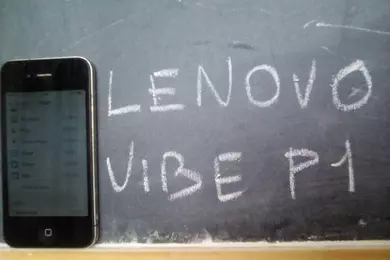 LENOVO
ViBE P1